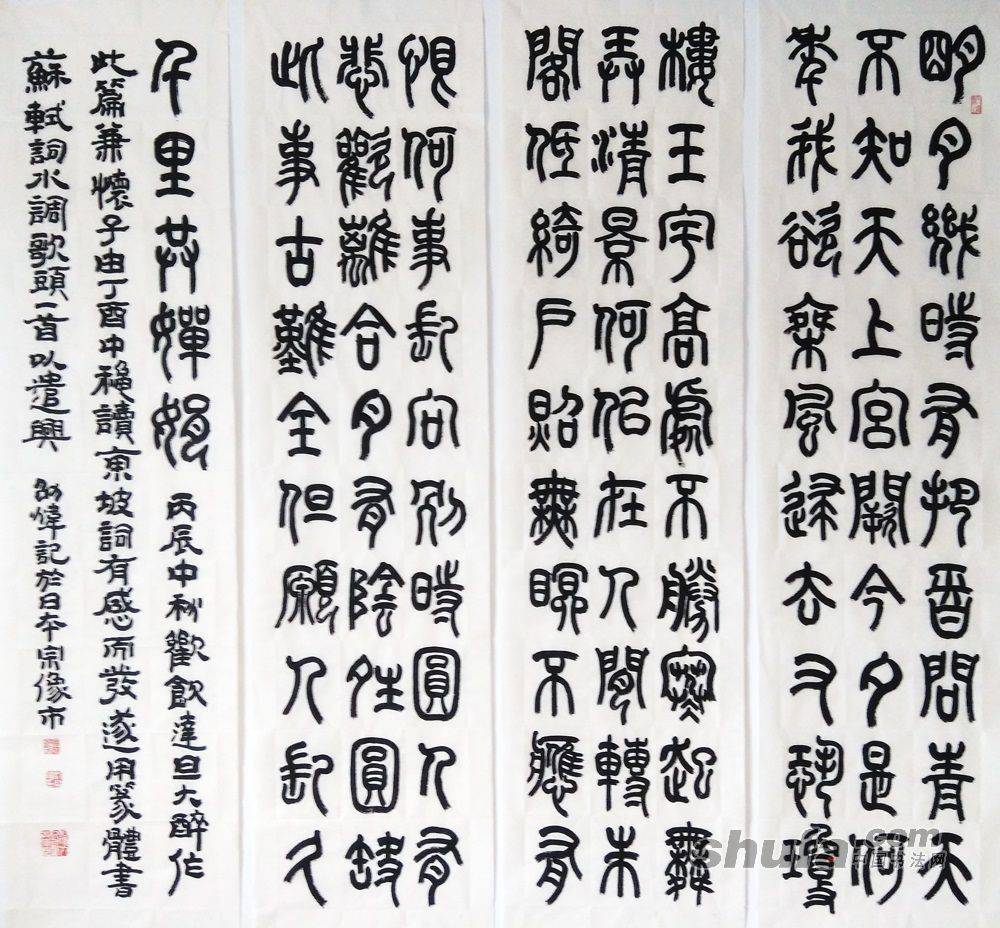 明月幾時有把酒問青天
不知天上宮闕今夕是何
年我欲乘風歸去又恐瓊
樓玉宇高處不勝寒起舞
弄清景何佀在人間轉朱
閣低綺戶照無眠不應有
恨何事長向別時圓人有
悲歡離合月有陰晴圓缺
此事古難全但願人長久
千里共嬋娟 丙辰中秋歡飲達旦大醉作
此篇兼懷子由丁酉中穐讀東坡詞有感而發遂用篆體書
蘇軾詞水調歌頭一首以遣興 記於日本宗像市
中国书法网